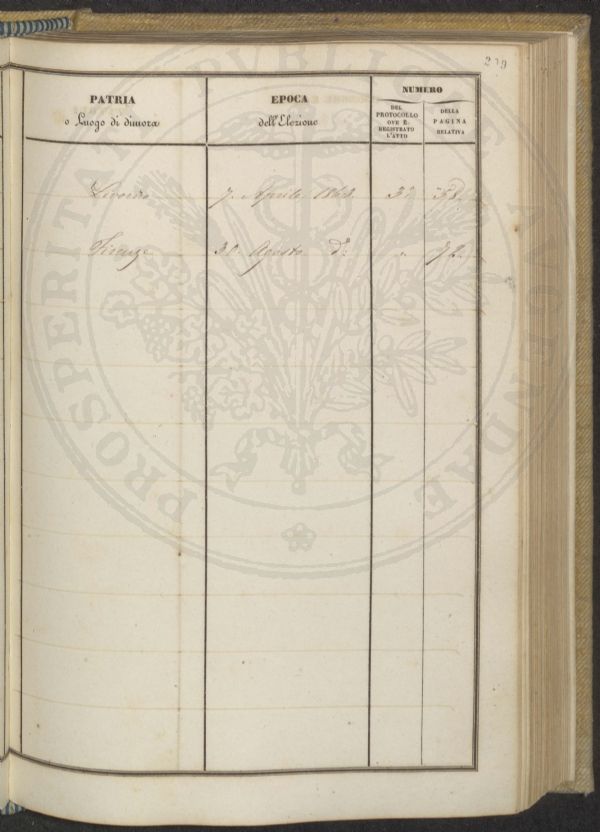 239
PATRIA
o Luogo di dimora
EPOCA
dell'Elezione
NUMERO
DEL
PROTOCOLLO
OVE È
REGISTRATO
L'ATTO
DELLA
PAGINA
RELATIVA
Livorno 7. Aprile
Firenze 30. Agosto d:o "
PROSPERITATI PUBLICAE AUGENDAE